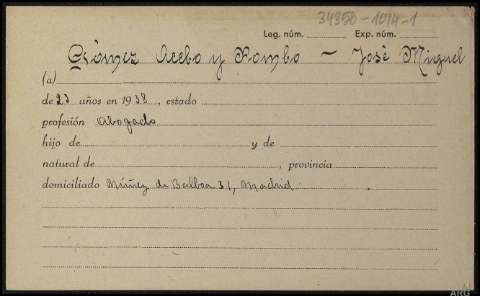 34350-1014-1
Leg. núm. Exp. núm.
Gómez Acebo y Pombo - José Miguel
(a)
de 23 años en 1938, estado
profesión Abogado
hijo de y de
natural de , provincia
domiciliado Núñez de Balboa 31, Madrid
ARG